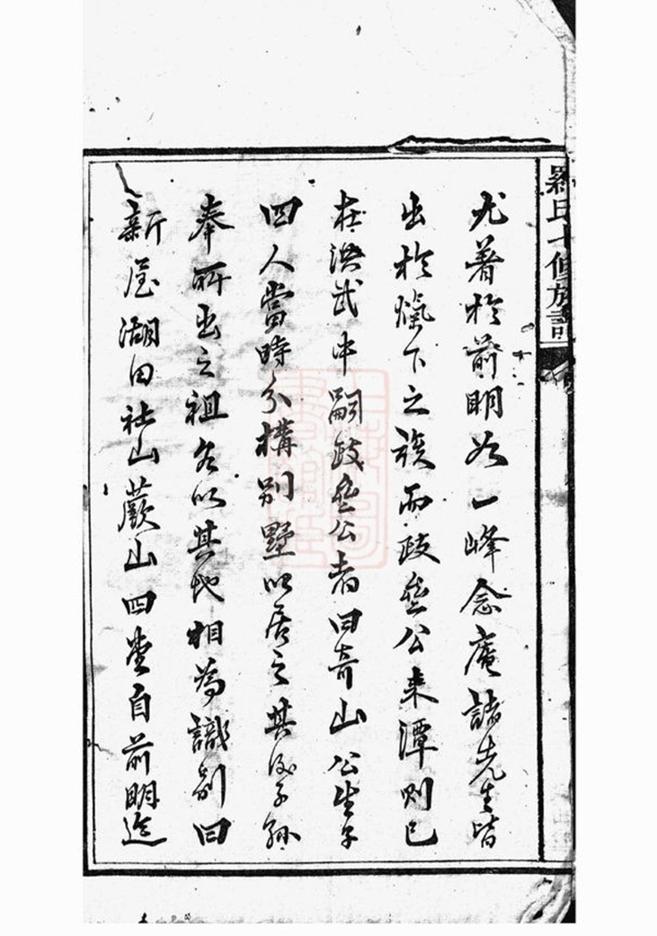 羅氏十修族譜
尤著於前明如一峰念庵諸先生皆
出於爊下之族而政壂公來潭則已
在洪武中嗣政壂公者曰奇山公生子
四人當時分構別墅以居之其後子孫
奉所出之祖各以其地相為識別曰
新屋湖田社山蕨山四堂自前明迄